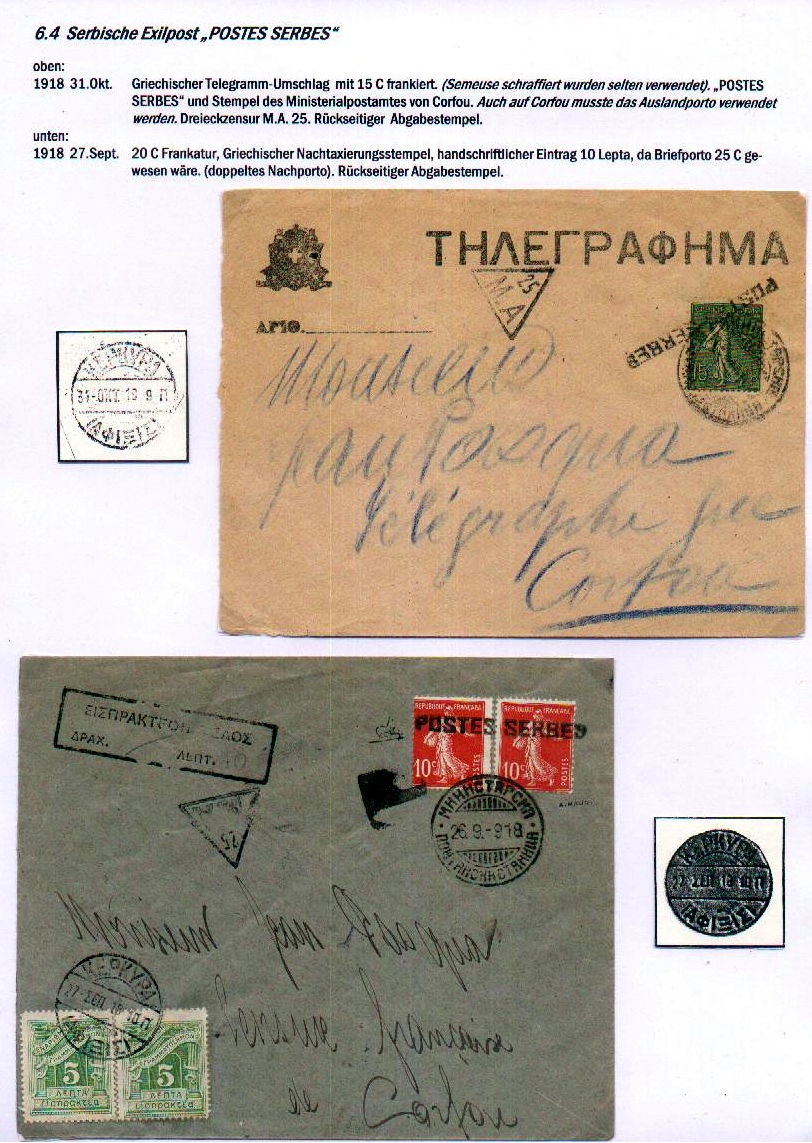 6.4 Serbische Exilpost „POSTES SERBES“
oben:
1918 31.Okt. Griechischer Telegramm-Umschlag mit 15 C frankiert. (Semeuse schraffiert wurden selten verwendet). „POSTES
SERBES“ und Stempel des Ministerialpostamtes von Corfou. Auch auf Corfou musste das Auslandporto verwendet
werden. Dreieckzensur M.A. 25. Rückseitiger Abgabestempel.
unten:
1918 27.Sept. 20 C Frankatur, Griechischer Nachtaxierungsstempel, handschriftlicher Eintrag 10 Lepta, da Briefporto 25 C ge-
wesen wäre. (doppeltes Nachporto). Rückseitiger Abgabestempel.
ΤΗΛΕΓΡΑΦΗΜΑ
25
Μ.Α
POST
SERBES
15
ΑΡΙΘ.
ΚΕΡΚΥΡΑ
31-ΟΚΤ. 18 9 Π
(ΑΦΙΞΙΣ)
Monsieur
Jean Pasqua
Télégraphe
Corfou
ΕΙΣΠΡΑΚΤΕΟΝ
ΔΡΑΧ. ΛΕΠΤ. 10
REPUBLIQUE FRANÇAISE REPUBLIQUE FRANÇAISE
POSTES SERBES
10c POSTES 10c POSTES
T
25
МИНИСТАРСКА
26.9.-918
ПОШТАНСКА СТАНИЦА
ΚΕΡΚΥΡΑ
27-ΣΕΠ. 18
(ΑΦΙΞΙΣ)
Monsieur Jean
Française
de Corfou
ΚΕΡΚΥΡΑ
27-ΣΕΠ. 18
(ΑΦΙΞΙΣ)
5 5
ΛΕΠΤΑ ΛΕΠΤΑ